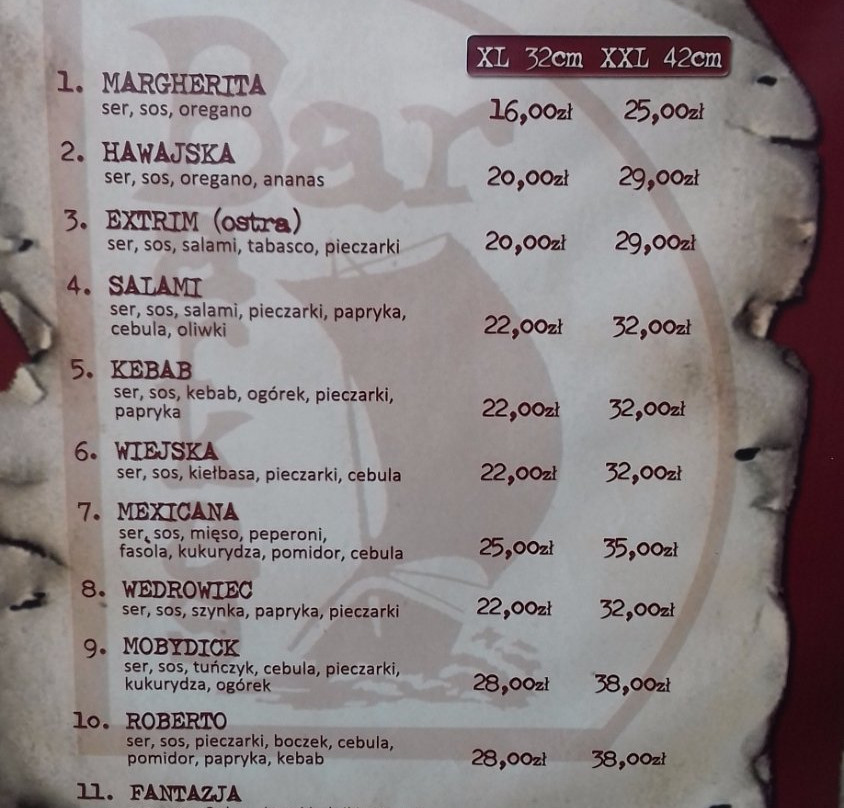 Bar
XL 32cm XXL 42cm
1. MARGHERITA
ser, sos, oregano
16,00zł 25,00zł
2. HAWAJSKA
ser, sos, oregano, ananas
20,00zł 29,00zł
3. EXTRIM (ostra)
ser, sos, salami, tabasco, pieczarki
20,00zł 29,00zł
4. SALAMI
ser, sos, salami, pieczarki, papryka,
cebula, oliwki
22,00zł 32,00zł
5. KEBAB
ser, sos, kebab, ogórek, pieczarki,
papryka
22,00zł 32,00zł
6. WIEJSKA
ser, sos, kiełbasa, pieczarki, cebula
22,00zł 32,00zł
7. MEXICANA
ser, sos, mięso, peperoni,
fasola, kukurydza, pomidor, cebula
25,00zł 35,00zł
8. WEDROWIEC
ser, sos, szynka, papryka, pieczarki
22,00zł 32,00zł
9. MOBYDICK
ser, sos, tuńczyk, cebula, pieczarki,
kukurydza, ogórek
28,00zł 38,00zł
10. ROBERTO
ser, sos, pieczarki, boczek, cebula,
pomidor, papryka, kebab
28,00zł 38,00zł
11. FANTAZJA